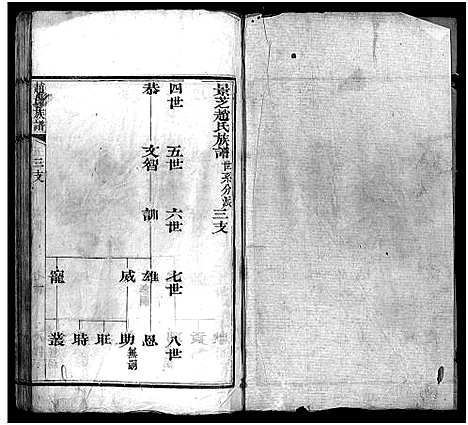 景芝趙氏族譜世系分派三支
四世 五世 六世 七世 八世
恭 文智 訓 雄 恩
威 助無嗣
旺
時
寵 叢
趙氏族譜 三支